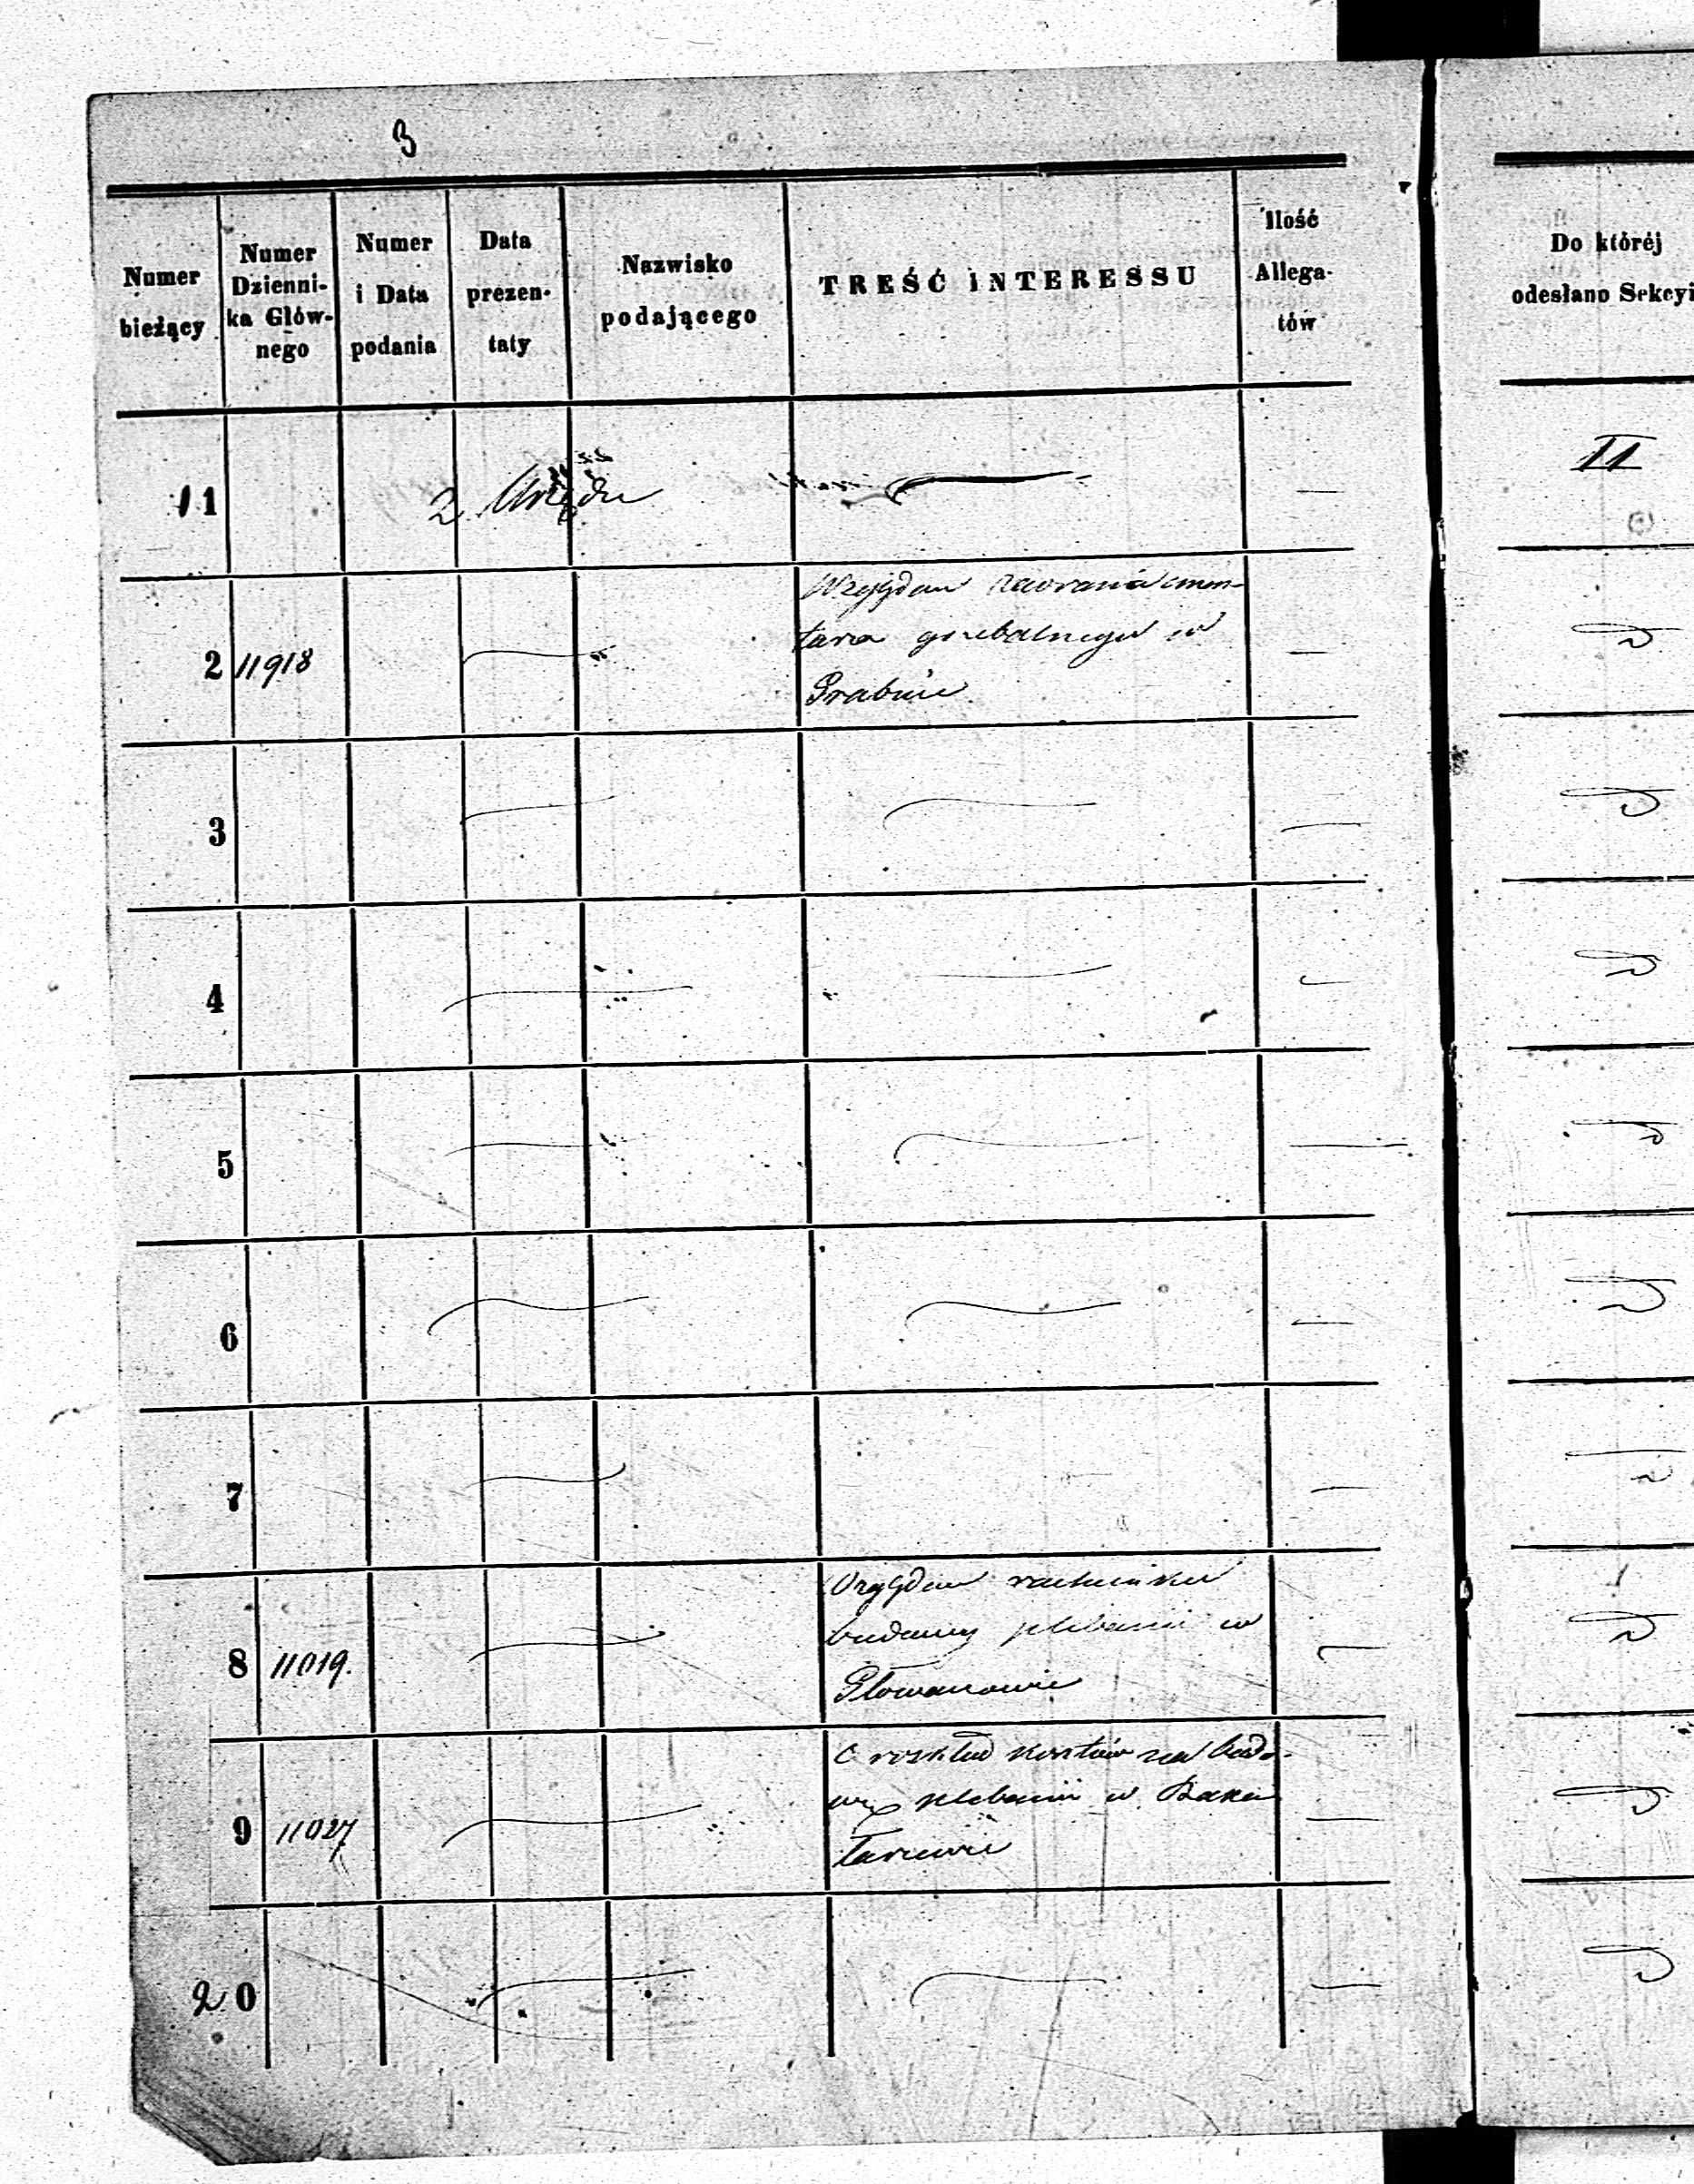 3
Numer bieżący
Numer Dzienni-ka Głów-nego
Numer i Data podania
Data prezen-taty
Nazwisko podającego
TREŚĆ INTERESSU
Ilość Allega-tów
Do któréj odesłano Sekcyi
11
z Urzędu
II
2 11918
Względem zaorania cmen-
tarza grzebalnego w
Grabnie
3
4
5
6
7
8 11019.
Względem rachunku
budowy plebanii w
9 11027
O rozkład kosztów na budo-
wę plebanii w
20